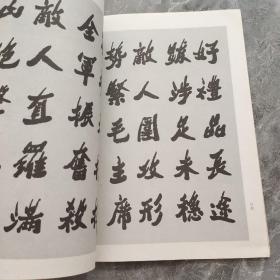 好禮品長途
跋涉足未穩
敵人圍攻形
勢緊毛主席
全軍振奮殺
敵人直羅滿
山